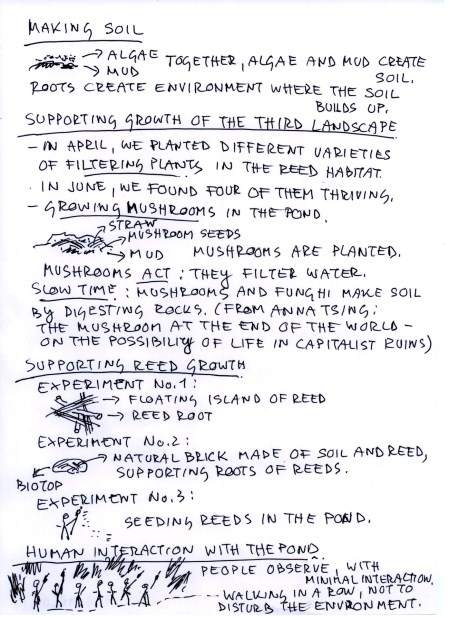 MAKING SOIL
→ ALGAE TOGETHER, ALGAE AND MUD CREATE
→ MUD SOIL.
ROOTS CREATE ENVIRONMENT WHERE THE SOIL
BUILDS UP.
SUPPORTING GROWTH OF THE THIRD LANDSCAPE
- IN APRIL, WE PLANTED DIFFERENT VARIETIES
OF FILTERING PLANTS IN THE REED HABITAT.
· IN JUNE, WE FOUND FOUR OF THEM THRIVING.
- GROWING MUSHROOMS IN THE POND.
→ STRAW
→ MUSHROOM SEEDS
→ MUD MUSHROOMS ARE PLANTED.
MUSHROOMS ACT: THEY FILTER WATER.
SLOW TIME: MUSHROOMS AND FUNGHI MAKE SOIL
BY DIGESTING ROCKS. (FROM ANNA TSING:
THE MUSHROOM AT THE END OF THE WORLD -
ON THE POSSIBILIY OF LIFE IN CAPITALIST RUINS)
SUPPORTING REED GROWTH
EXPERIMENT No.1:
→ FLOATING ISLAND OF REED
→ REED ROOT
EXPERIMENT No.2:
→ NATURAL BRICK MADE OF SOIL AND REED,
SUPPORTING ROOTS OF REEDS.
BIOTOP
EXPERIMENT No.3:
SEEDING REEDS IN THE POND.
HUMAN INTERACTION WITH THE POND
PEOPLE OBSERVE, WITH
MINIMAL INTERACTION.
WALKING IN A ROW, NOT TO
DISTURB THE ENVIRONMENT.